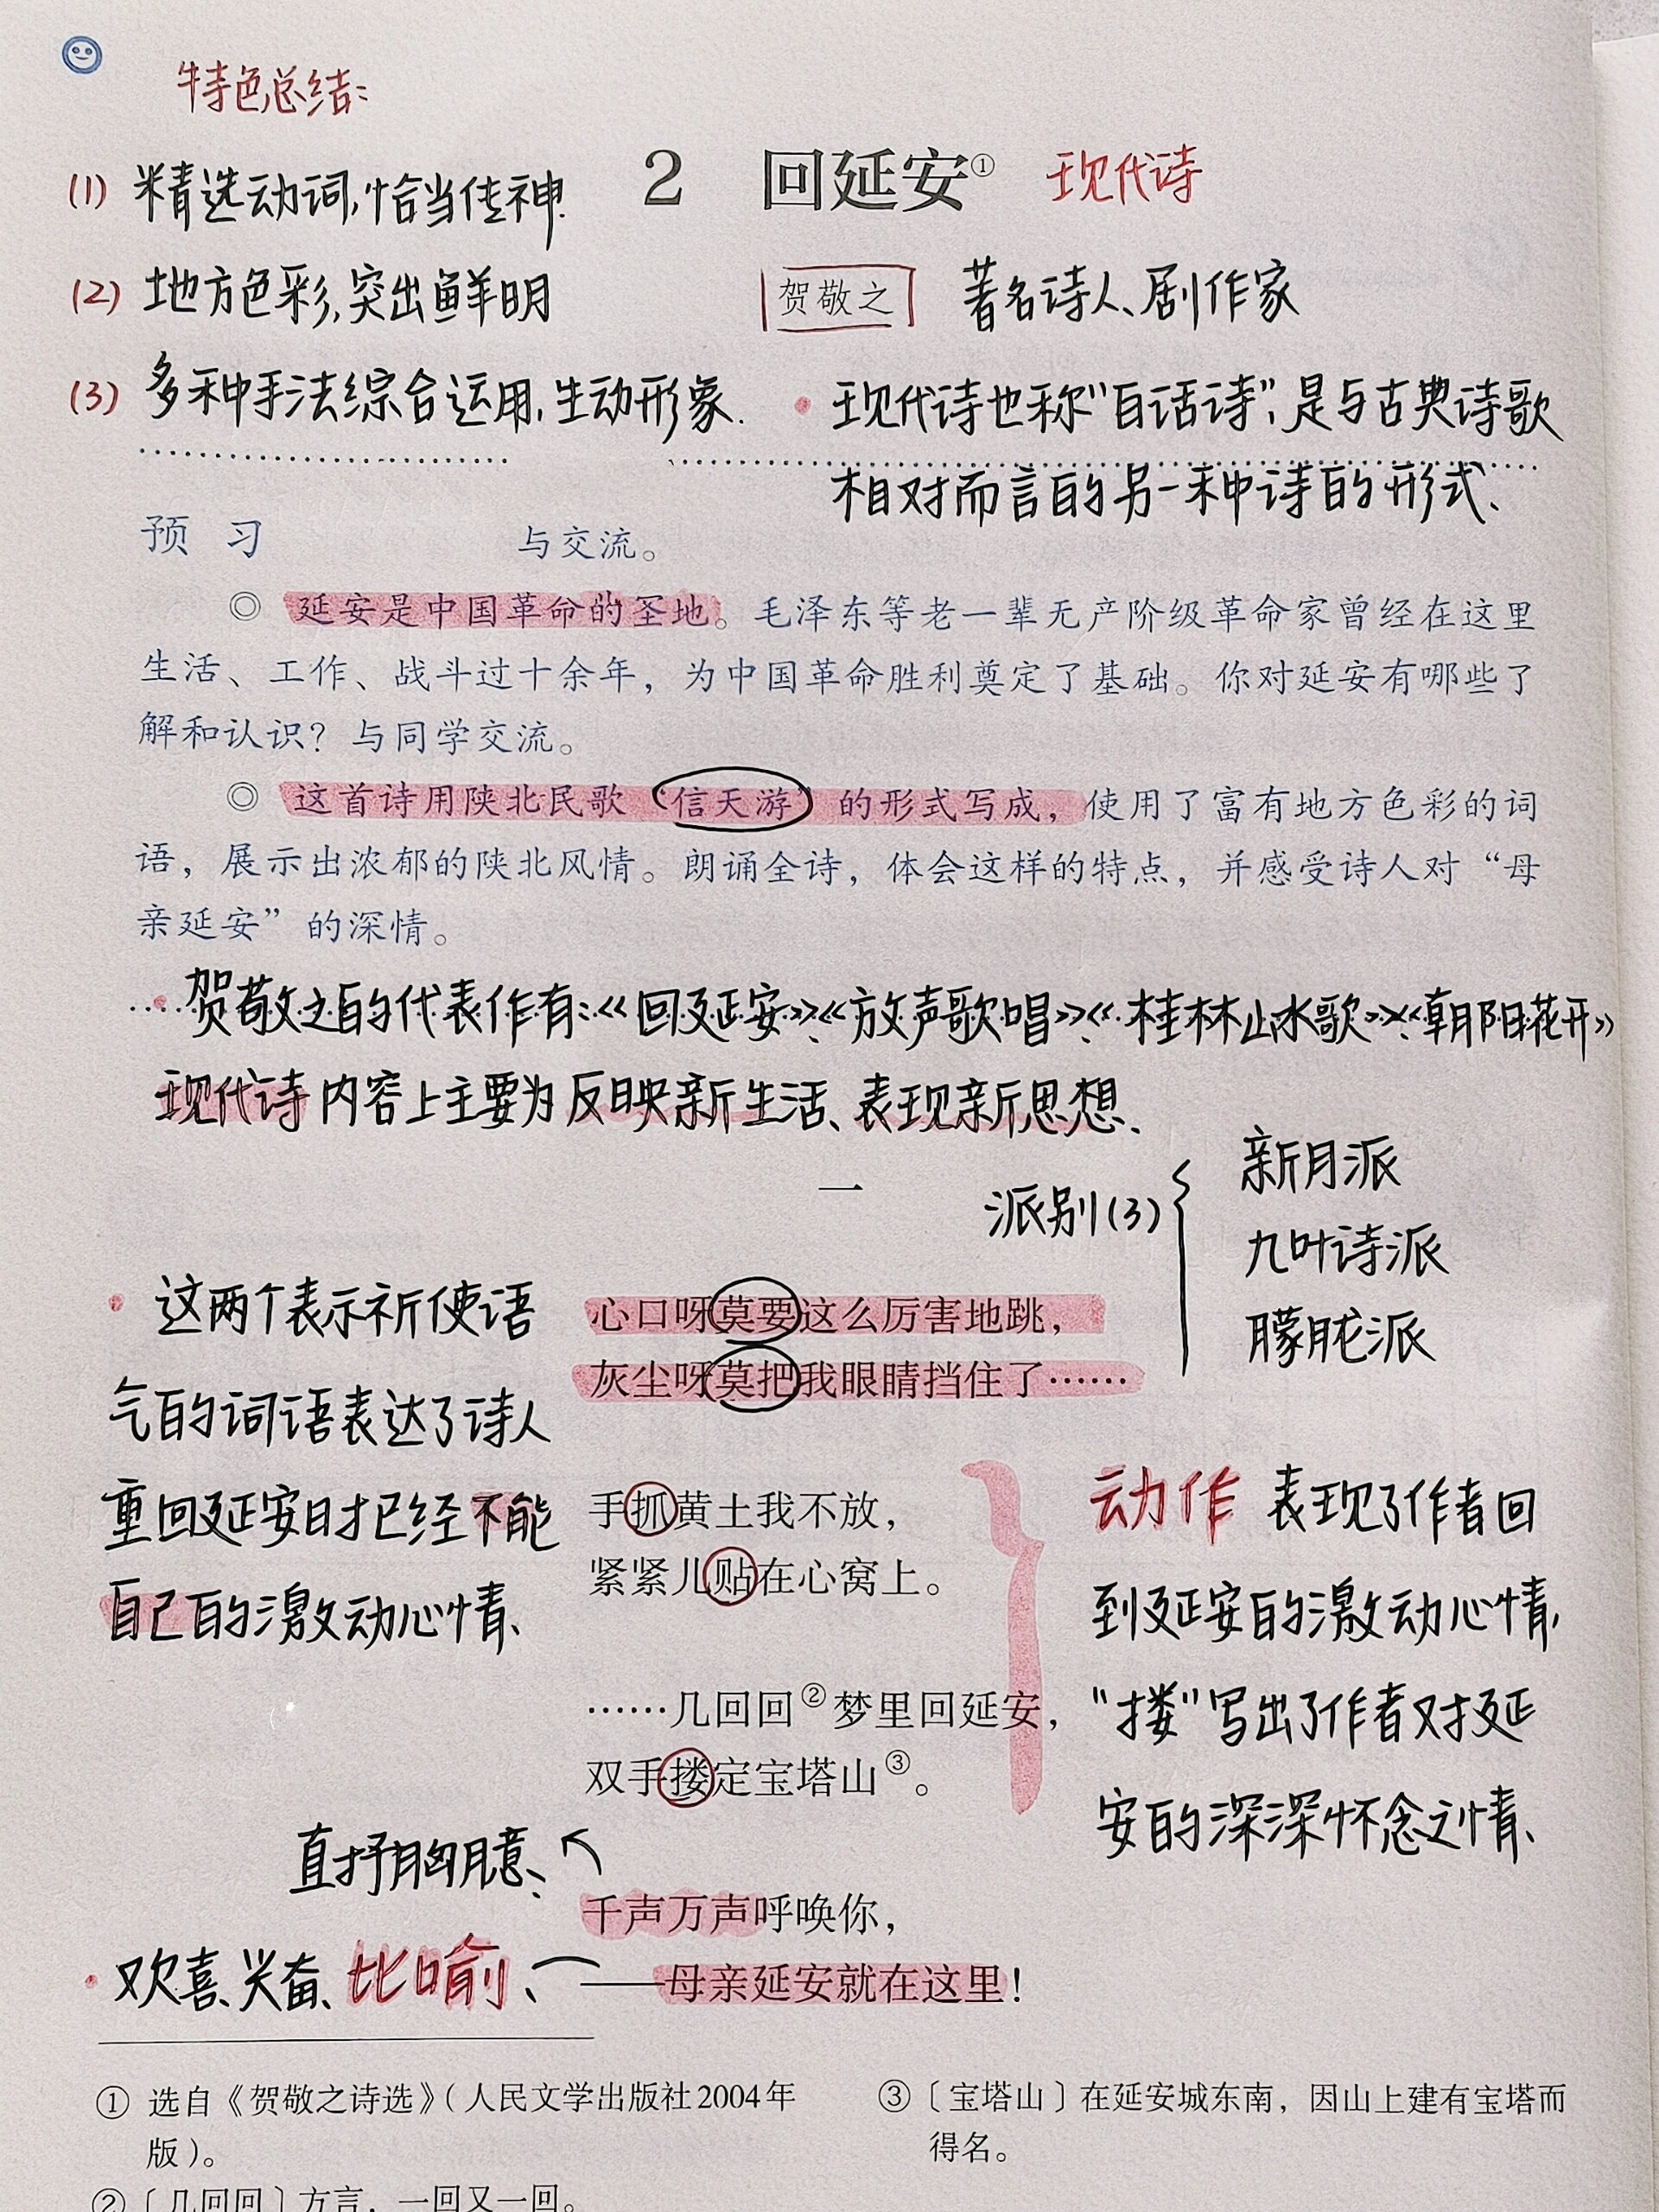 特色总结:
(1) 精选动词,恰当传神.
2 回延安① 现代诗
(2) 地方色彩,突出鲜明
贺敬之 著名诗人、剧作家
(3) 多种手法综合运用,生动形象.
• 现代诗也称"白话诗",是与古典诗歌
相对而言的另一种诗的形式、
预 习
与交流。
◎ 延安是中国革命的圣地。毛泽东等老一辈无产阶级革命家曾经在这里
生活、工作、战斗过十余年，为中国革命胜利奠定了基础。你对延安有哪些了
解和认识？与同学交流。
◎ 这首诗用陕北民歌“信天游”的形式写成，使用了富有地方色彩的词
语，展示出浓郁的陕北风情。朗诵全诗，体会这样的特点，并感受诗人对“母
亲延安”的深情。
• 贺敬之的代表作有:《回延安》、《放声歌唱》、《桂林山水歌》、《朝阳花开》
现代诗内容上主要为反映新生活、表现新思想、
一
派别(3)
新月派
九叶诗派
朦胧派
• 这两个表示祈使语
气的词语表达了诗人
重回延安时把经不能
自己的激动心情、
心口呀莫要这么厉害地跳，
灰尘呀莫把我眼睛挡住了……
手抓黄土我不放，
紧紧儿贴在心窝上。
……几回回②梦里回延安，
双手搂定宝塔山③。
动作 表现了作者回
到延安的激动心情,
"搂"写出了作者对延
安的深深怀念之情、
直抒胸臆、
千声万声呼唤你，
• 欢喜、兴奋、比喻、
——母亲延安就在这里！
① 选自《贺敬之诗选》（人民文学出版社2004年
版）。
②〔几回回〕方言，一回又一回。
③〔宝塔山〕在延安城东南，因山上建有宝塔而
得名。